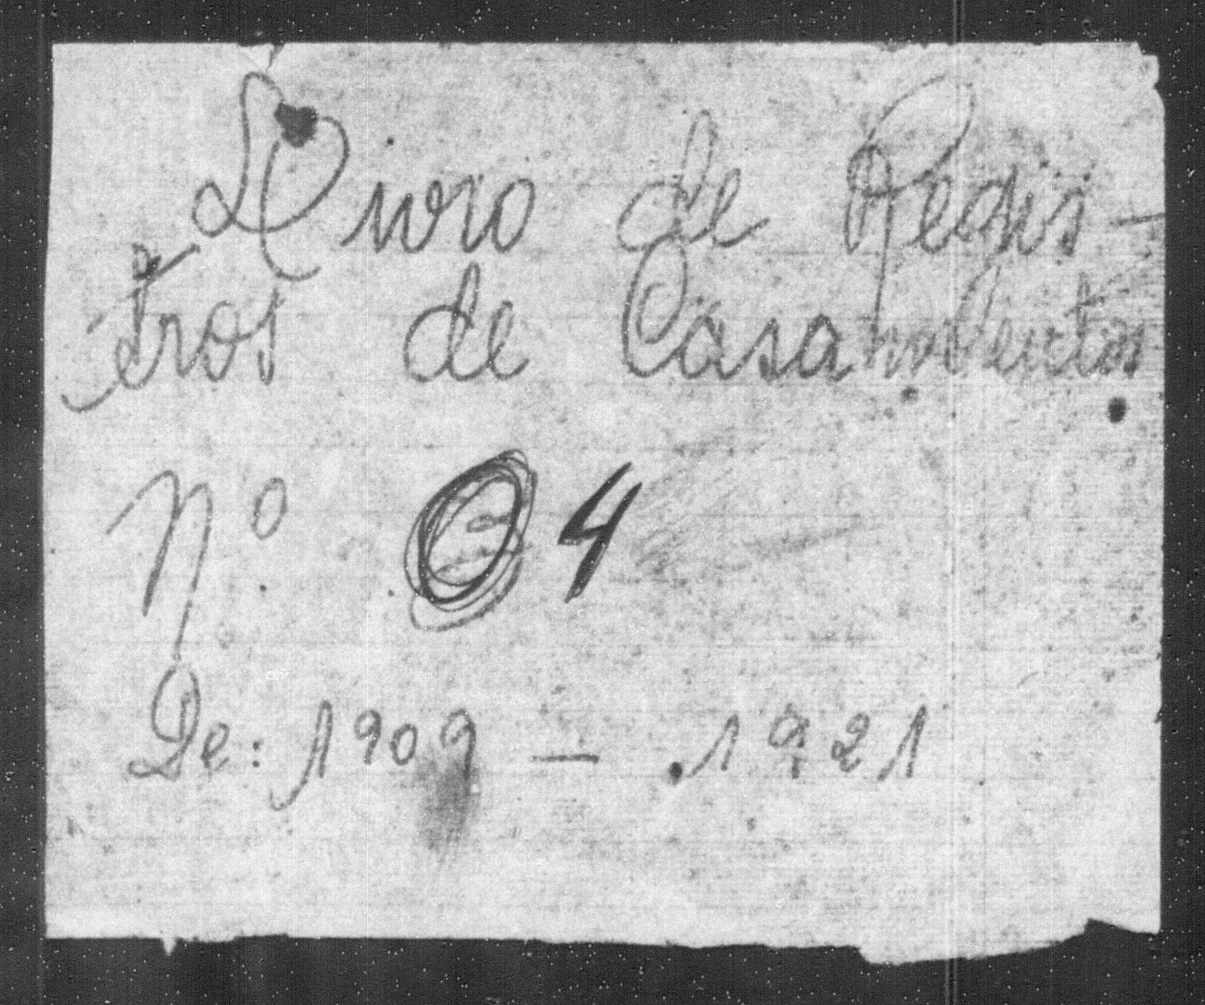 Livro de Regis-
tros de Casamentos
Nº 04
De: 1909 - 1921